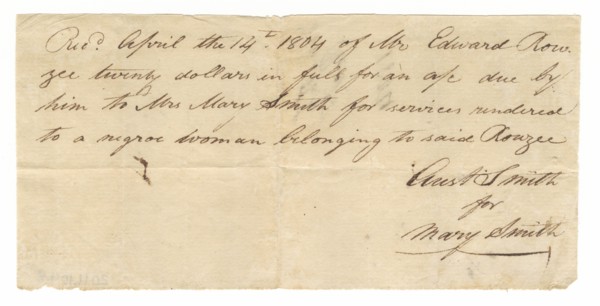 Rec.d April the 14th 1804 of Mr Edward Row-
zee twenty dollars in full for an a/c due by
him to Mrs Mary Smith for services rendered
to a negroe woman belonging to said Rowzee
Aust Smith
for
Mary Smith